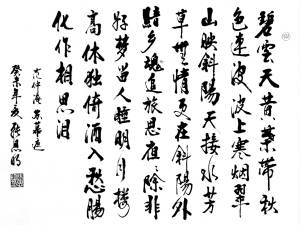 碧雲天黄葉地秋
色連波波上寒烟翠
山映斜陽天接水芳
草無情更在斜陽外
黯乡魂追旅思夜〻除非
好梦留人睡明月楼
高休独倚酒入愁腸
化作相思泪
范仲淹 苏幕遮
癸未年